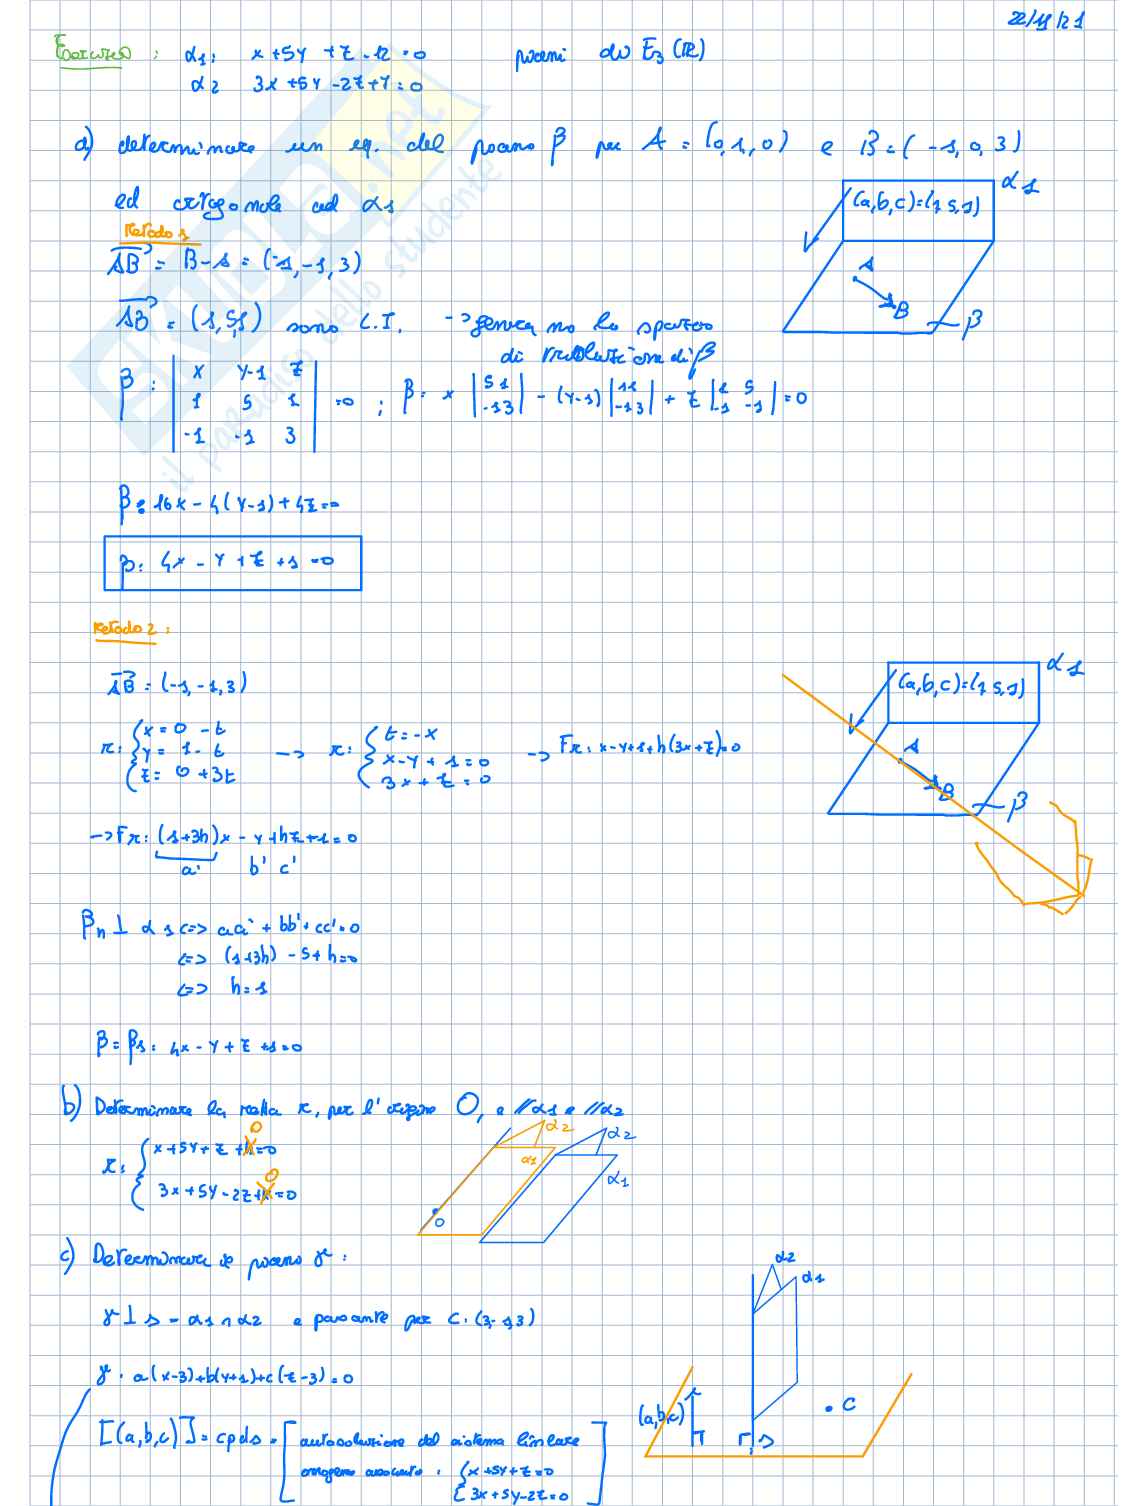 22/11/21
Esercizio : α1: x+5y+z-12=0 piani di E3(R)
α2 3x+5y-2z+7=0
a) determinare un eq. del piano β per A=(0,1,0) e B=(-1,0,3)
ed ortogonale ad α1
Metodo 1
AB = B-A = (-1,-1,3)
AB = (1,5,1) sono L.I. -> generano lo spazio
di traslazione di β
β: | x y-1 z | | 1 5 1 | | -1 -1 3 | =0 ; β: x | 5 1 | | -1 3 | - (y-1) | 1 1 | | -1 3 | + z | 1 5 | | -1 -1 | =0
β: 16x-4(y-1)+4z=0
β: 4x-y+z+1=0
α1
(a,b,c)=(1,5,1)
A
B
β
Metodo 2:
AB=(-1,-1,3)
r: { x=0-t y=1-t z=0+3t -> r: { t=-x x-y+1=0 3x+z=0 -> Fr: x-y+1+h(3x+z)=0
-> Fr: (1+3h)x-y+hz+1=0
a' b' c'
βh ⊥ α1 <=> aa'+bb'+cc'=0
<=> (1+3h)-5+h=0
<=> h=1
β=β1: 4x-y+z+1=0
α1
(a,b,c)=(1,5,1)
A
B
β
b) Determinare la retta r, per l'origine O, e //α1 e //α2
0
r: { x+5y+z+h=0
0
3x+5y-2z+k=0
α2 α2
α1 α1
O
c) Determinare il piano γ:
γ⊥s=α1∩α2 e passante per C=(3,-1,3)
γ: a(x-3)+b(y+1)+c(z-3)=0
[(a,b,c)]=cpds= [ autosoluzione del sistema lineare
omogeneo associato: { x+5y+z=0
3x+5y-2z=0 ]
α2
α1
(a,b,c)
r,s
C
SKUOLA.net
il paradiso dello studente